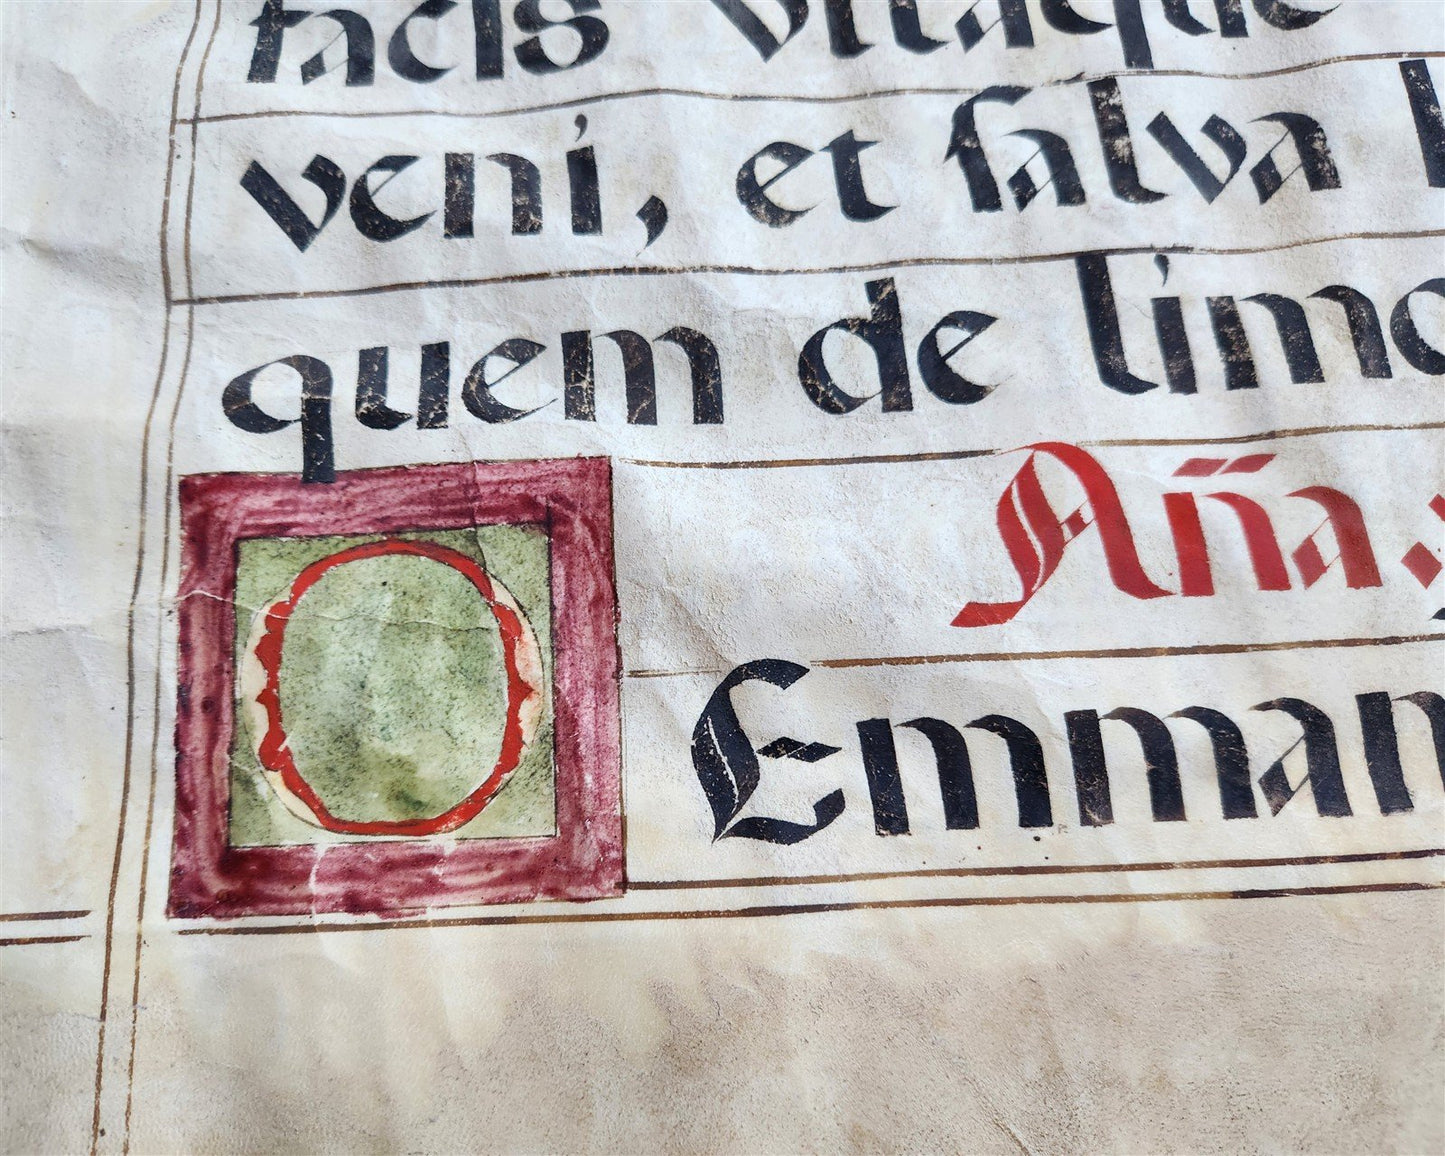 facis utraque
veni, et salva
quem de limo
Aña.
O Emman